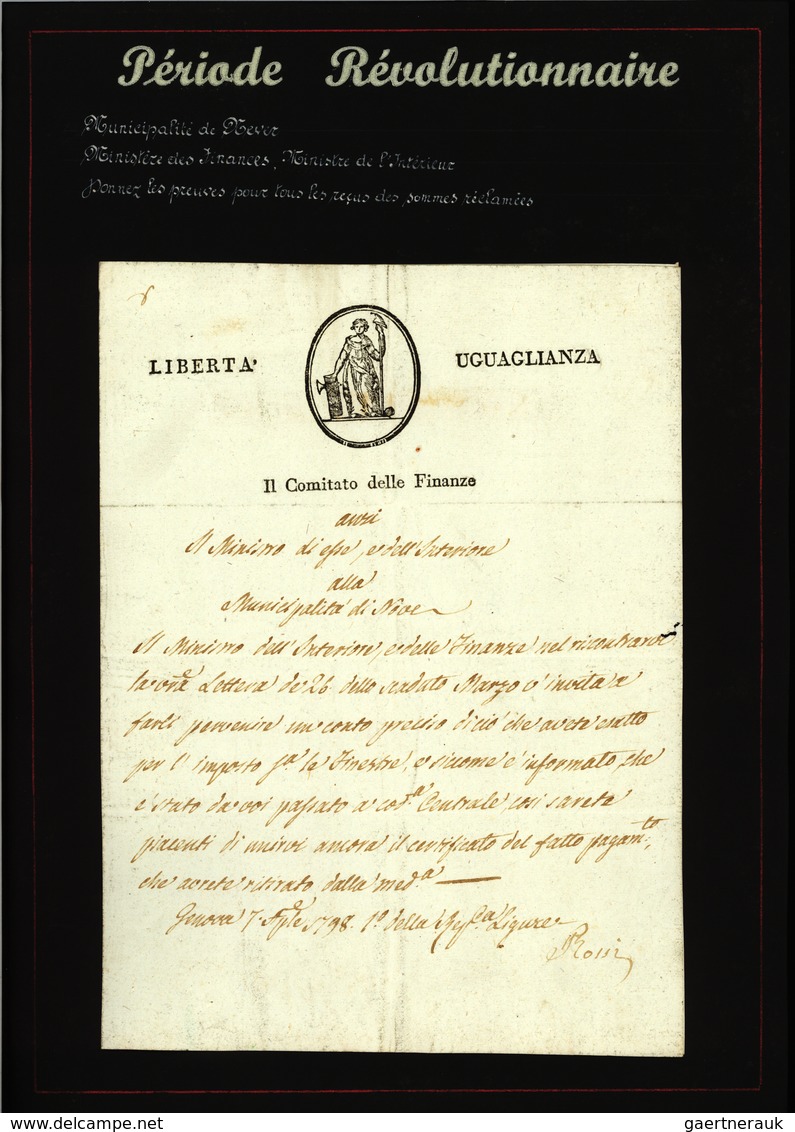 Période Révolutionnaire
Municipalité de Never
Ministère des Finances, Ministre de l'Intérieur
Donnez les preuves pour tous les reçus des sommes réclamées
LIBERTA' UGUAGLIANZA
Il Comitato delle Finanze
Il Ministro di esse, e dell'Interiore
alla
Municipalità di Nove
Il Ministro dell'Interiore, e delle Finanze nel riscontrarvi
la vrã Lettera de 26 dello scaduto Marzo v'invita a
farli pervenire un conto preciso di ciò che avete esatto
per l'imposto s.a le Finestre, e siccome è informato, che
è stato da voi passato a cod.a Centrale, così sarete
piacenti di unirvi ancora il certificato del fatto pagam.to,
che avrete ritirato dalla med.a
Genova 7 Aple 1798. 1.o della Rep.ca Ligure
Rossi
delcampe.net
gaertnerauk